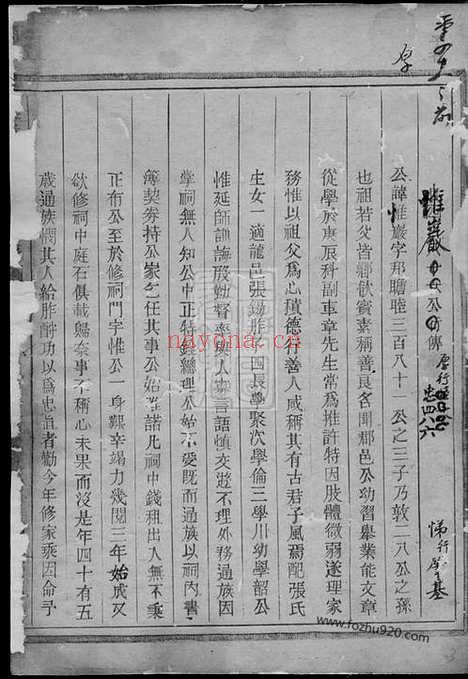 惟巖 公傳
公諱惟巖字邦瞻睦三百八十一公之三子乃敦二八公之孫
也祖若父皆鄉飲賓素稱善良名聞郡邑公幼習舉業能文章
從學於庚辰科副車章先生常為推許特因肢體微弱遂理家
務惟以祖父為心積德行善人咸稱其有古君子風焉配張氏
生女一適龍邑張錫胙子四長學聚次學倫三學川幼學韶公
惟延師訓誨殷勤督率與人寡言語慎交遊不理外務通族因
掌祠無人知公中正特舉總理公始不受既而通族以祠內書
簿契券持公家乞任其事公始諾凡祠中錢租出入無不秉
正而行公至於修祠門字惟公一身艱辛竭力幾閱三年始成又
欲修祠中庭石俱載歸奈事不稱心未果而沒是年四十有五
歲通族憫其人給胙酬功以為忠直者勸今年修家乘因命予
nayona.cn
www.fozhu920.com